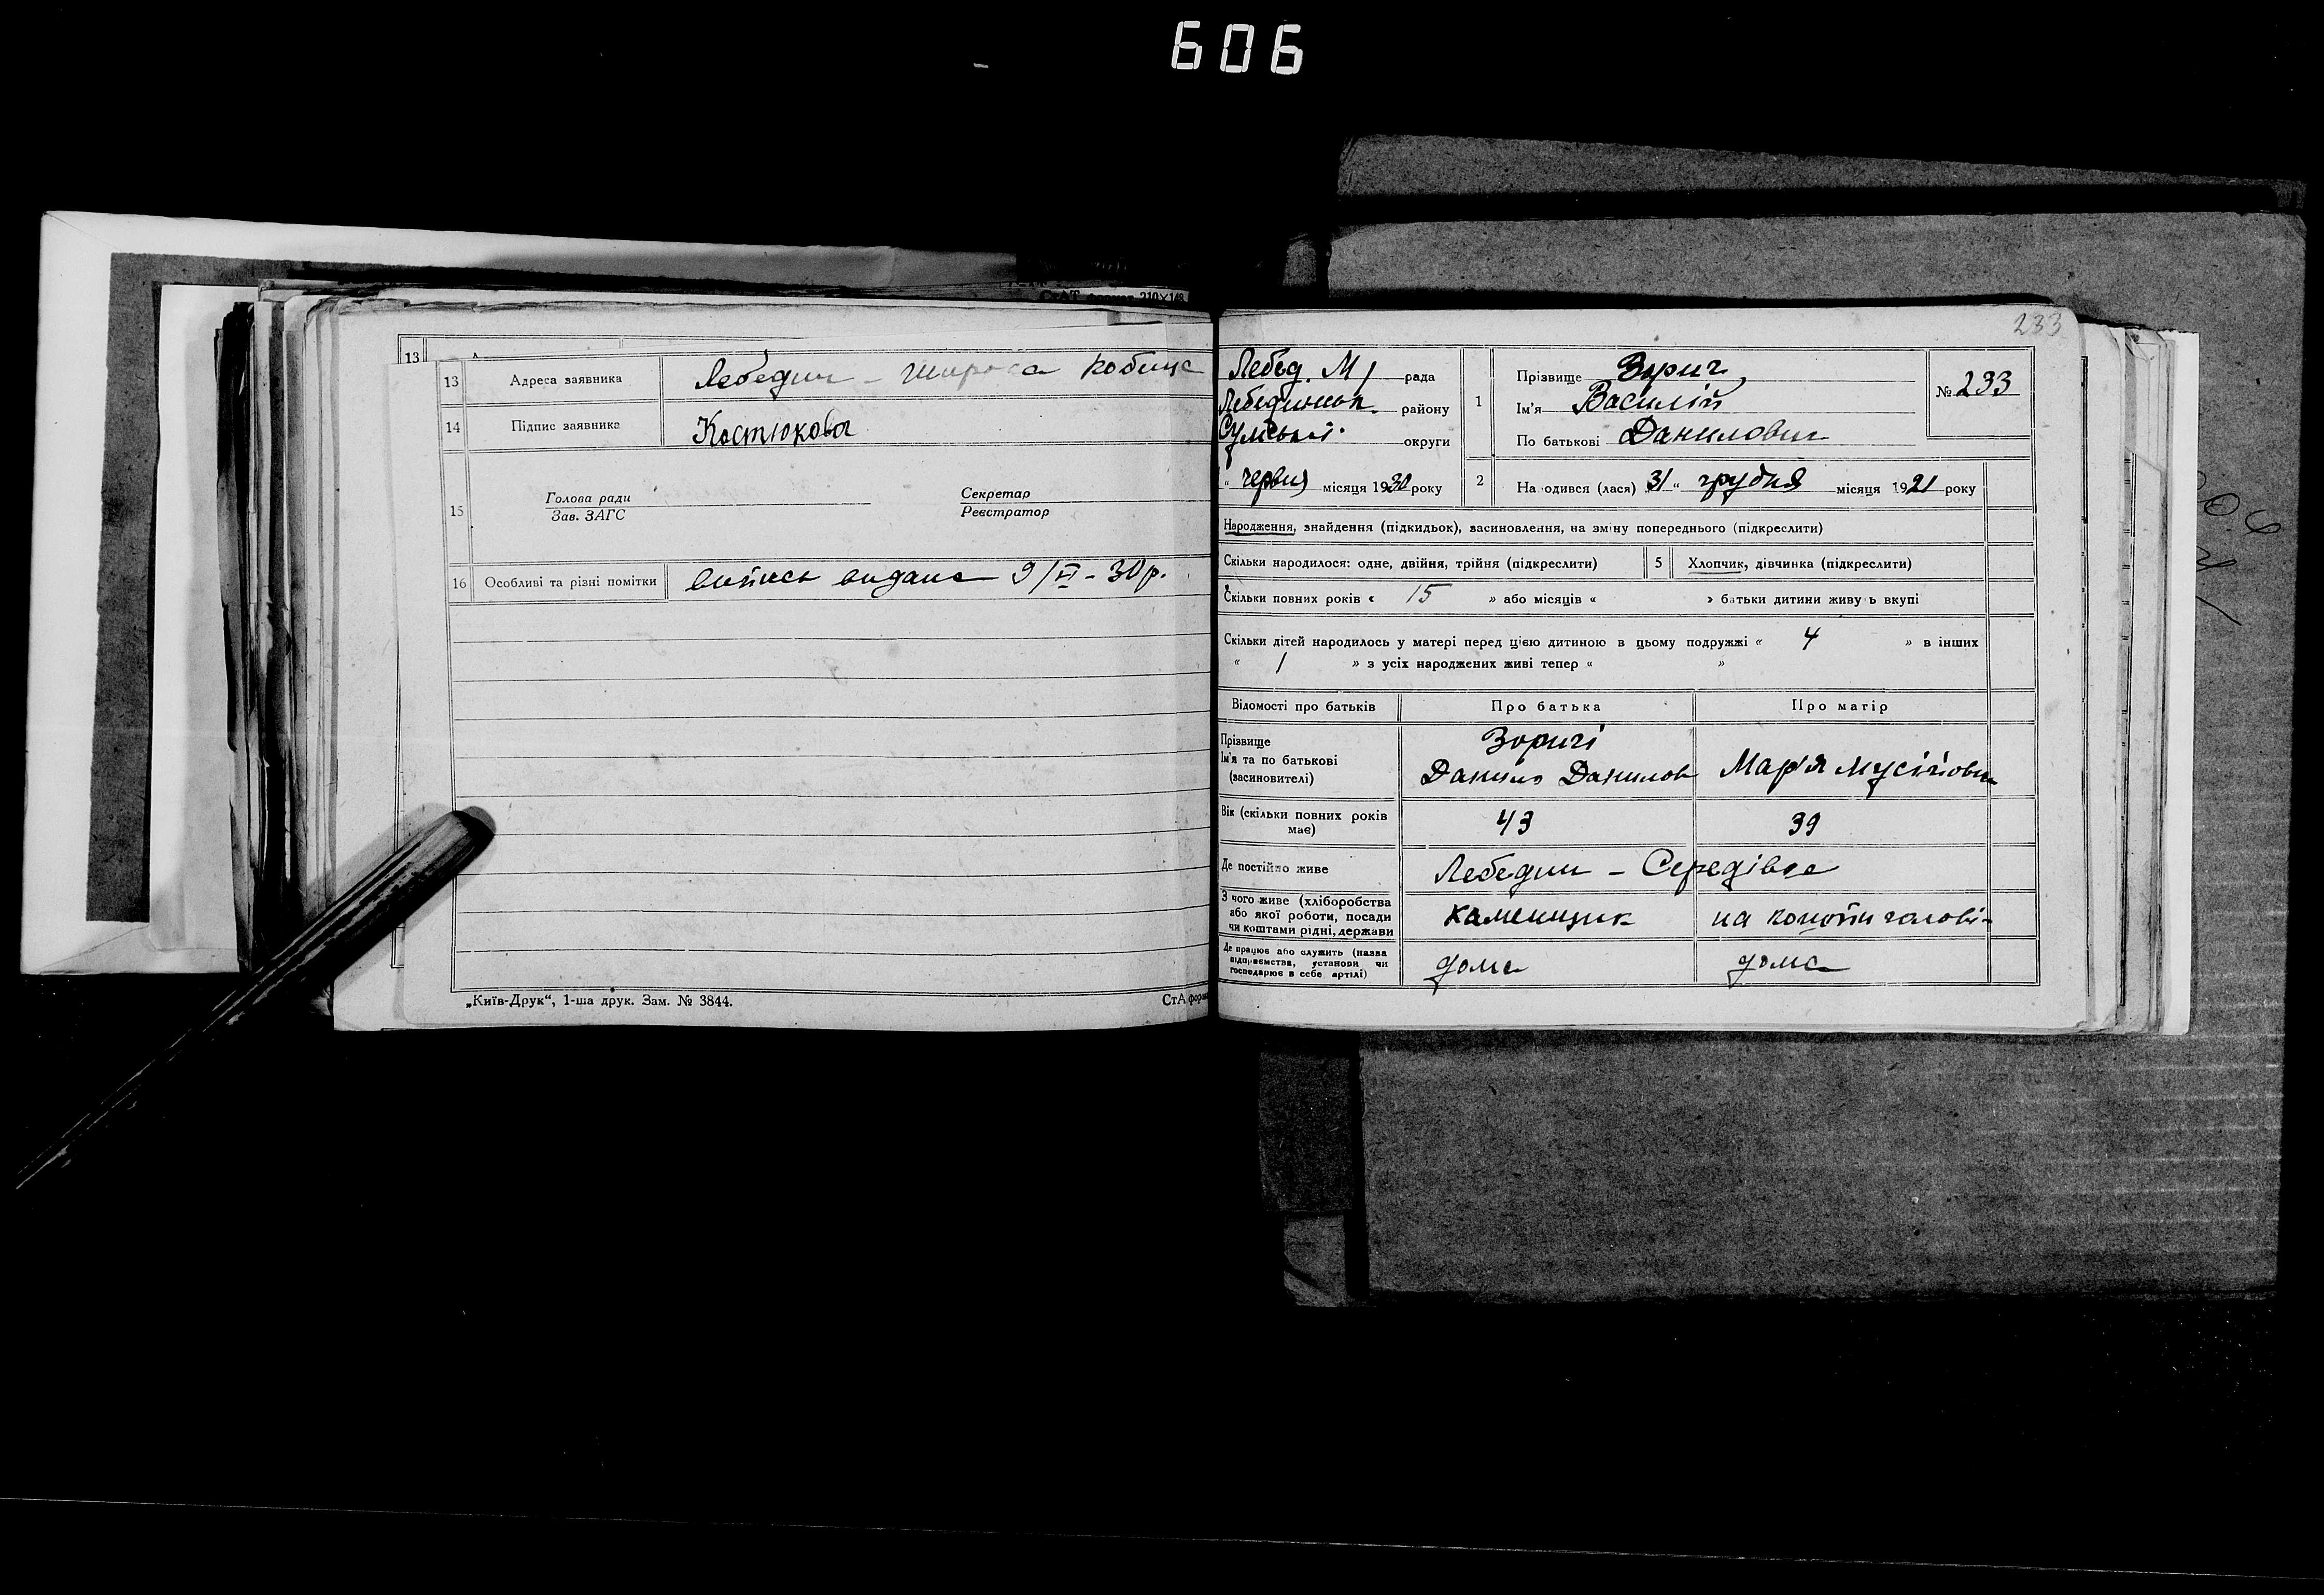 606
СтАТ формат 210×148
13
13 Адреса заявника Лебедин - Широка Кобиця
14 Підпис заявника Костюкова
Голова ради Секретар
15
Зав. ЗАГС Реєстратор
16 Особливі та різні помітки випись видана 9/VI - 30 р.
„Київ-Друк“, 1-ша друк. Зам. № 3844. СтА форма
233
Лебед. М рада
Лебединськ. району
Сумської округи
" червня місяця 1930 року
1 Прізвище Зорич
Ім'я Василій
По батькові Данилович
№ 233
2 На одився (лася) 31 " грудня місяця 1921 року
Народження, знайдення (підкидьок), засиновлення, на зміну попереднього (підкреслити)
Скільки народилося: одне, двійня, трійня (підкреслити) 5 Хлопчик, дівчинка (підкреслити)
Скільки повних років « 15 » або місяців « » батьки дитини живу ь вкупі
Скільки дітей народилось у матері перед цією дитиною в цьому подружжі « 4 » в інших
« 1 » з усіх народжених живі тепер « »
Відомості про батьків Про батька Про матір
Прізвище Зоричі
Ім'я та по батькові
(засиновителі) Данило Данилов Мар'я Мусійовн
Вік (скільки повних років
має) 43 39
Де постійно живе Лебедин - Середівка
З чого живе (хліборобства
або якої роботи, посади
чи коштами рідні, держави каменщик на кошти чолові-
Де працює або служить (назва
підприємства, установи чи
господарює в себе артілі) дома дома